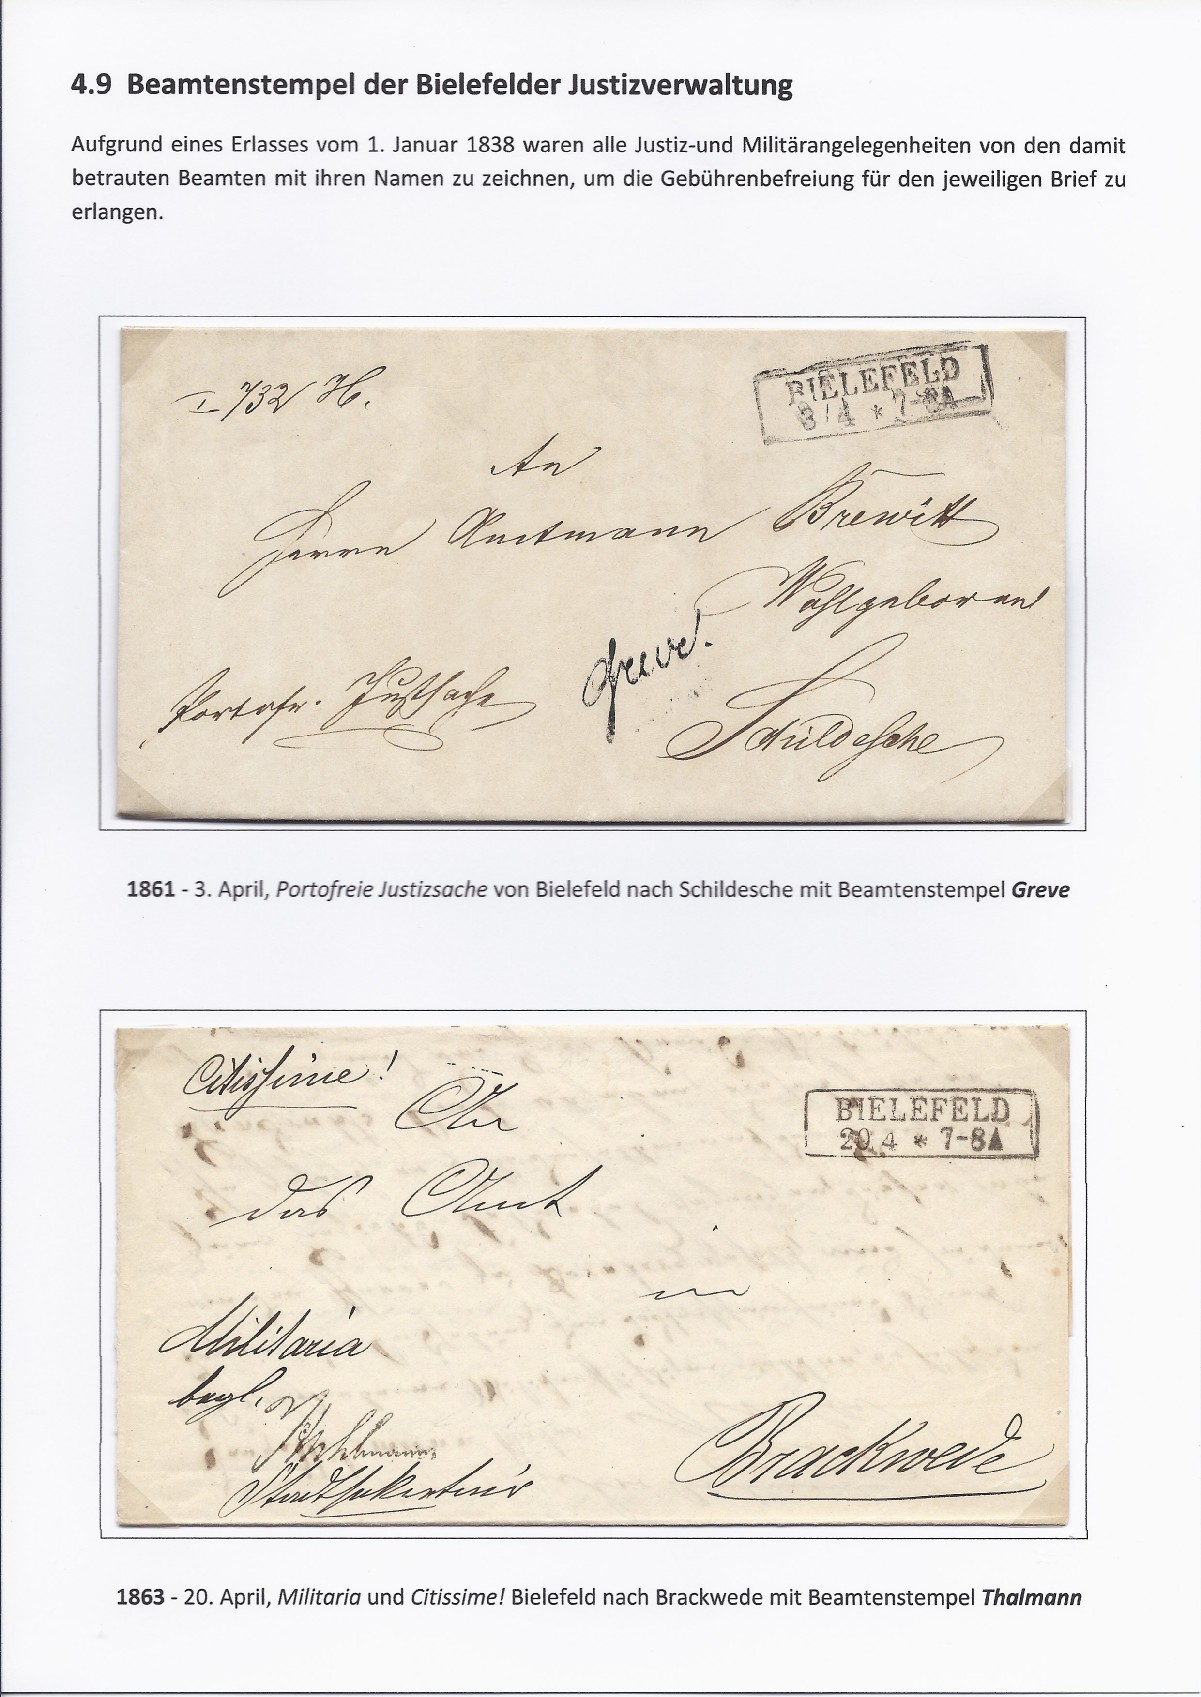 4.9 Beamtenstempel der Bielefelder Justizverwaltung
Aufgrund eines Erlasses vom 1. Januar 1838 waren alle Justiz-und Militärangelegenheiten von den damit
betrauten Beamten mit ihren Namen zu zeichnen, um die Gebührenbefreiung für den jeweiligen Brief zu
erlangen.
I 732 H.
BIELEFELD
3/4 * 7-8A
An
Herrn Amtmann Brewitt
Wohlgeboren
Greve.
Portofr. Justsache
Schildesche
1861 - 3. April, Portofreie Justizsache von Bielefeld nach Schildesche mit Beamtenstempel Greve
Citissime!
An
BIELEFELD
20 4 * 7-8A
das Amt
in
Militaria
begl.
Stadtsekretair
Brackwede
1863 - 20. April, Militaria und Citissime! Bielefeld nach Brackwede mit Beamtenstempel Thalmann